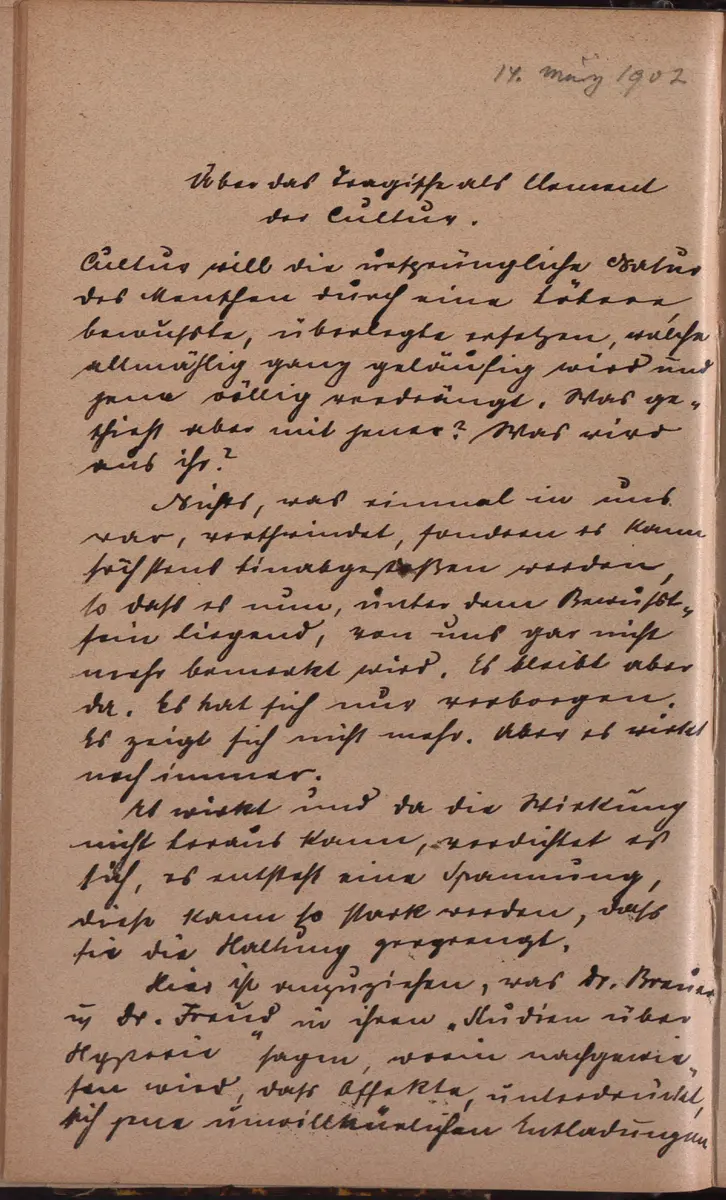 14. März 1902
Über das Tragische als Element
der Cultur.
Cultur will die ursprüngliche Natur
des Menschen durch eine höhere,
bewußte, überlegte ersetzen, welche
allmählig ganz geläufig wird und
jene völlig verdrängt. Was ge-
schieht aber mit jener? Was wird
aus ihr?
Nichts, was einmal in uns
war, verschwindet, sondern es kann
höchstens hinabgestoßen werden,
so daß es nun, unter dem Bewußt-
sein liegend, von uns gar nicht
mehr bemerkt wird. Es bleibt aber
da. Es hat sich nur verborgen.
Es zeigt sich nicht mehr. Aber es wirkt
noch immer.
Es wirkt und da die Wirkung
nicht heraus kann, verdichtet es
sich, es entsteht eine Spannung,
diese kann so stark werden, daß
sie die Haltung zersprengt.
Hier ist anzuziehen, was Dr. Breuer
u Dr. Freud in ihren „Studien über
Hysterie" sagen, worin nachgewie-
sen wird, daß Affekte, unterdrückt,
sich jene unwillkürlichen Entladungen